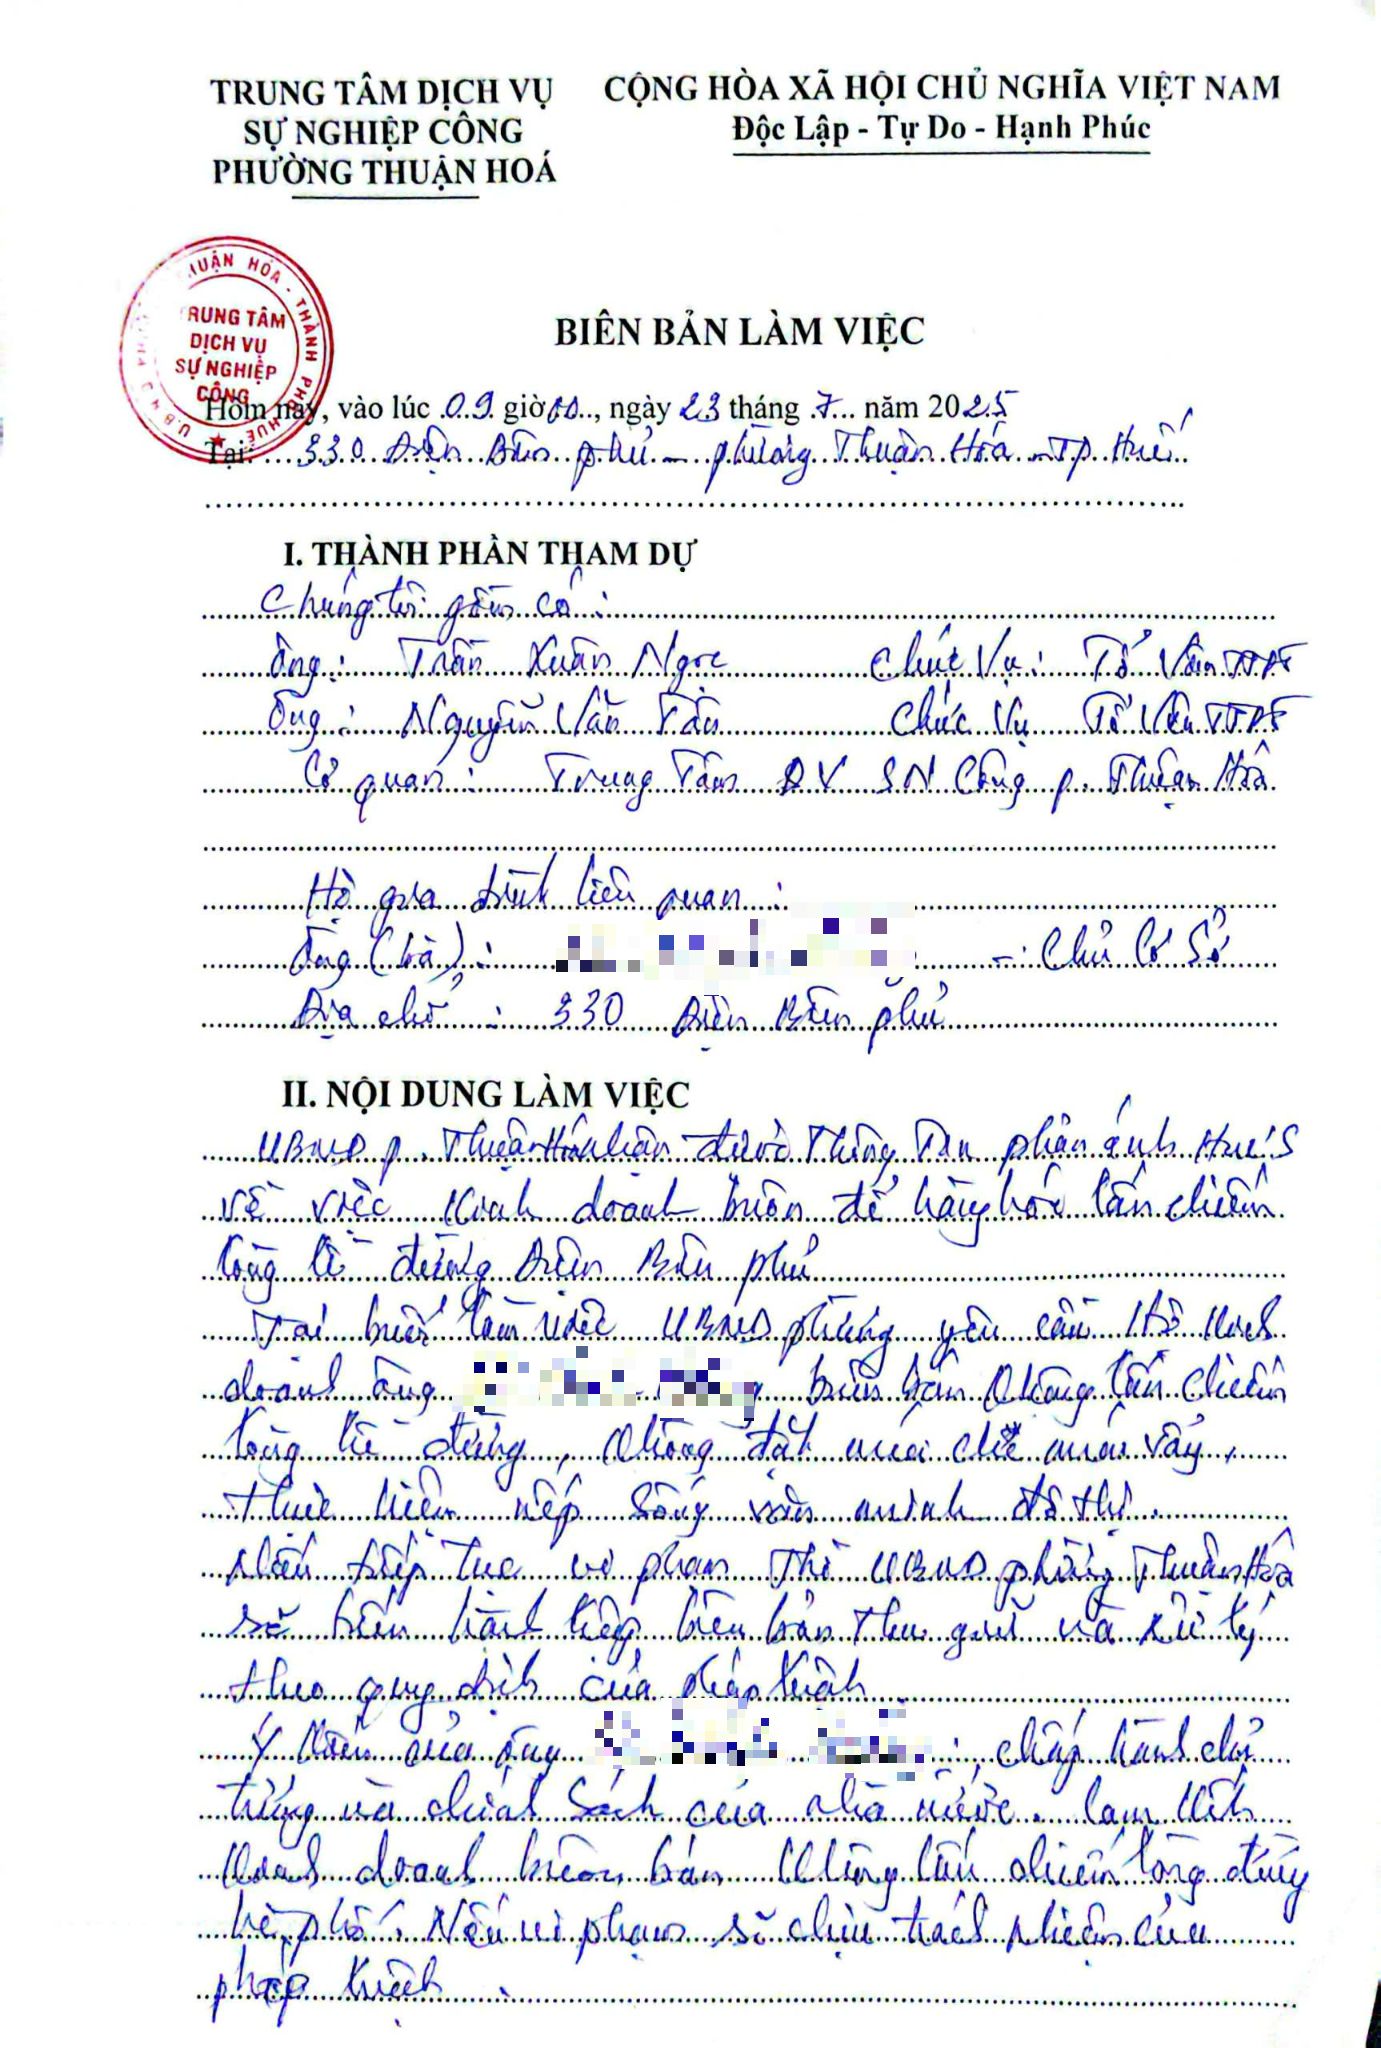 TRUNG TÂM DỊCH VỤ
SỰ NGHIỆP CÔNG
PHƯỜNG THUẬN HOÁ
CỘNG HÒA XÃ HỘI CHỦ NGHĨA VIỆT NAM
Độc Lập - Tự Do - Hạnh Phúc
THUẬN HÓA - THÀNH PHỐ HUẾ
U.B.N.D
TRUNG TÂM
DỊCH VỤ
SỰ NGHIỆP
CÔNG
BIÊN BẢN LÀM VIỆC
Hôm nay, vào lúc 09 giờ 00, ngày 23 tháng 7 năm 2025
Tại: 330 Điện Biên phủ - phường Thuận Hóa - TP Huế
I. THÀNH PHẦN THAM DỰ
Chúng tôi gồm có :
Ông : Trần Xuân Ngọc Chức Vụ : Tổ Viên
Ông : Nguyễn Văn Tân Chức Vụ Tổ Viên
Cơ quan : Trung Tâm DV SN Công p. Thuận Hóa
Hộ gia đình liên quan :
Ông (bà) : - Chủ Cơ Sở
Địa chỉ : 330 Điện Biên phủ
II. NỘI DUNG LÀM VIỆC
UBND p. Thuận Hóa nhận được Thông Tin phản ánh Huế S
về việc Kinh doanh buôn để hàng hóa lấn chiếm
lòng lề đường Điện Biên phủ
Tại buổi làm việc UBND phường yêu cầu Hộ Kinh
doanh ông buôn bán Không lấn chiếm
lòng lề đường, Không đặt mái che mái vẩy,
thực hiện nếp sống văn minh đô thị.
Nếu tiếp tục vi phạm Thì UBND phường Thuận Hóa
sẽ tiến hành lập biên bản thu giữ và xử lý
theo quy định của pháp luật
Ý kiến của ông : chấp hành chủ
trương và chính sách của nhà nước. Cam Kết
Kinh doanh buôn bán Không lấn chiếm lòng đường
hè phố. Nếu vi phạm sẽ chịu trách nhiệm của
pháp luật.